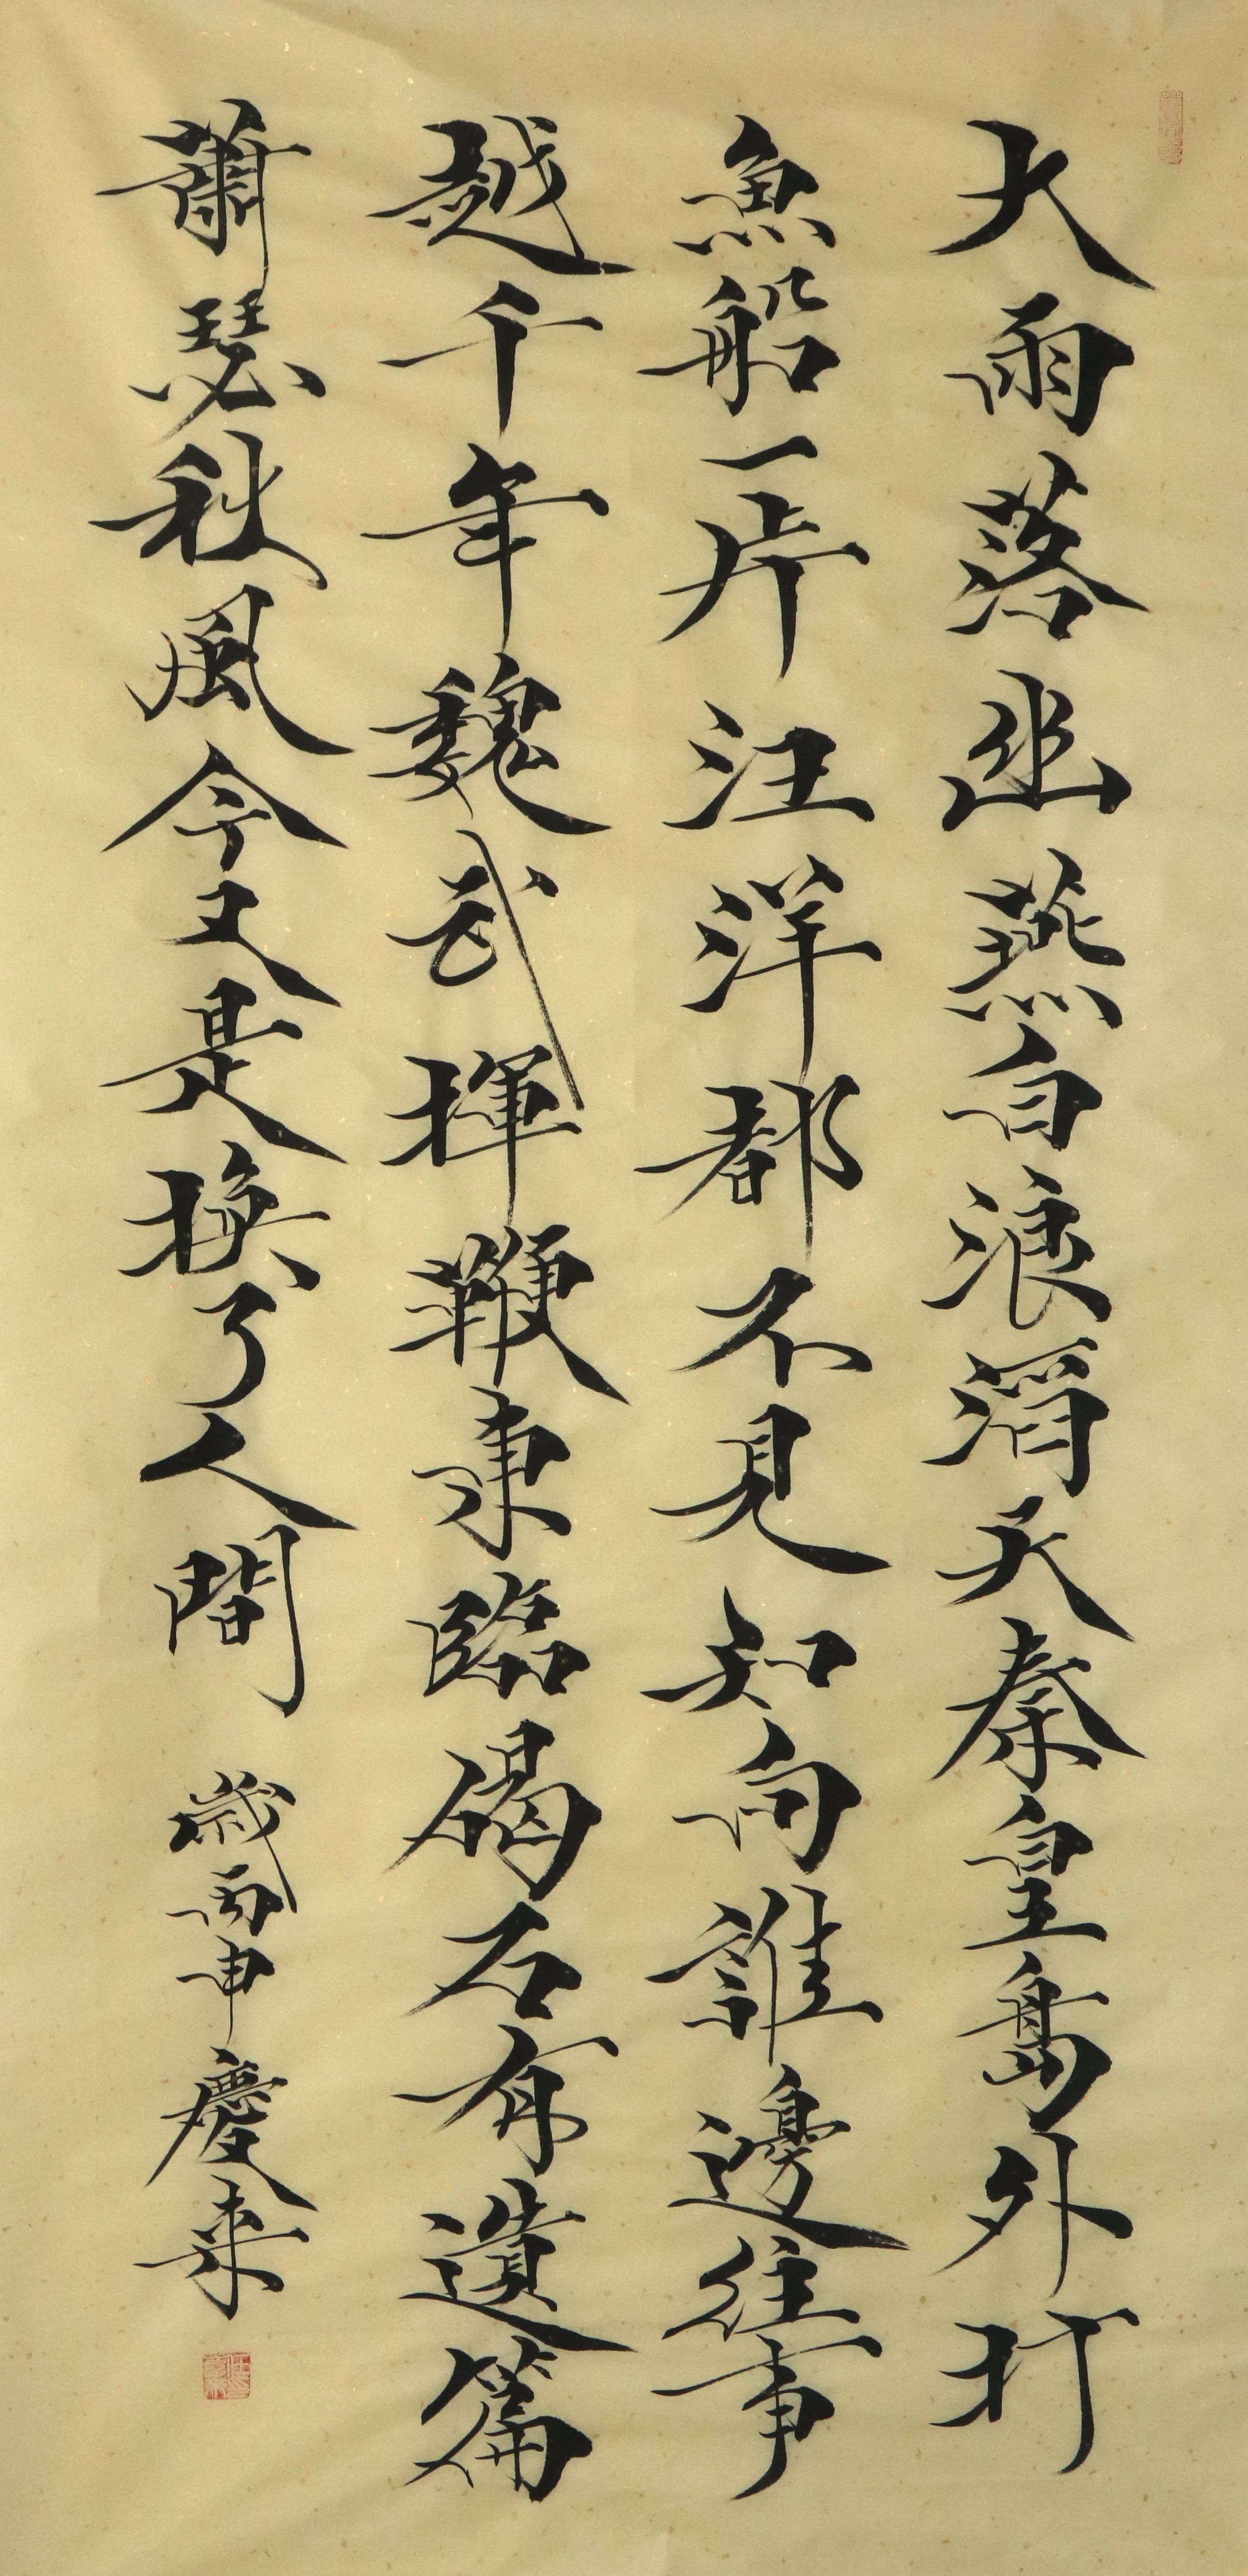 大雨落幽燕白浪滔天秦皇島外打
魚船一片汪洋都不見知向誰邊往事
越千年魏武揮鞭東臨碣石有遺篇
蕭瑟秋風今又是換了人間
歲丙申慶來